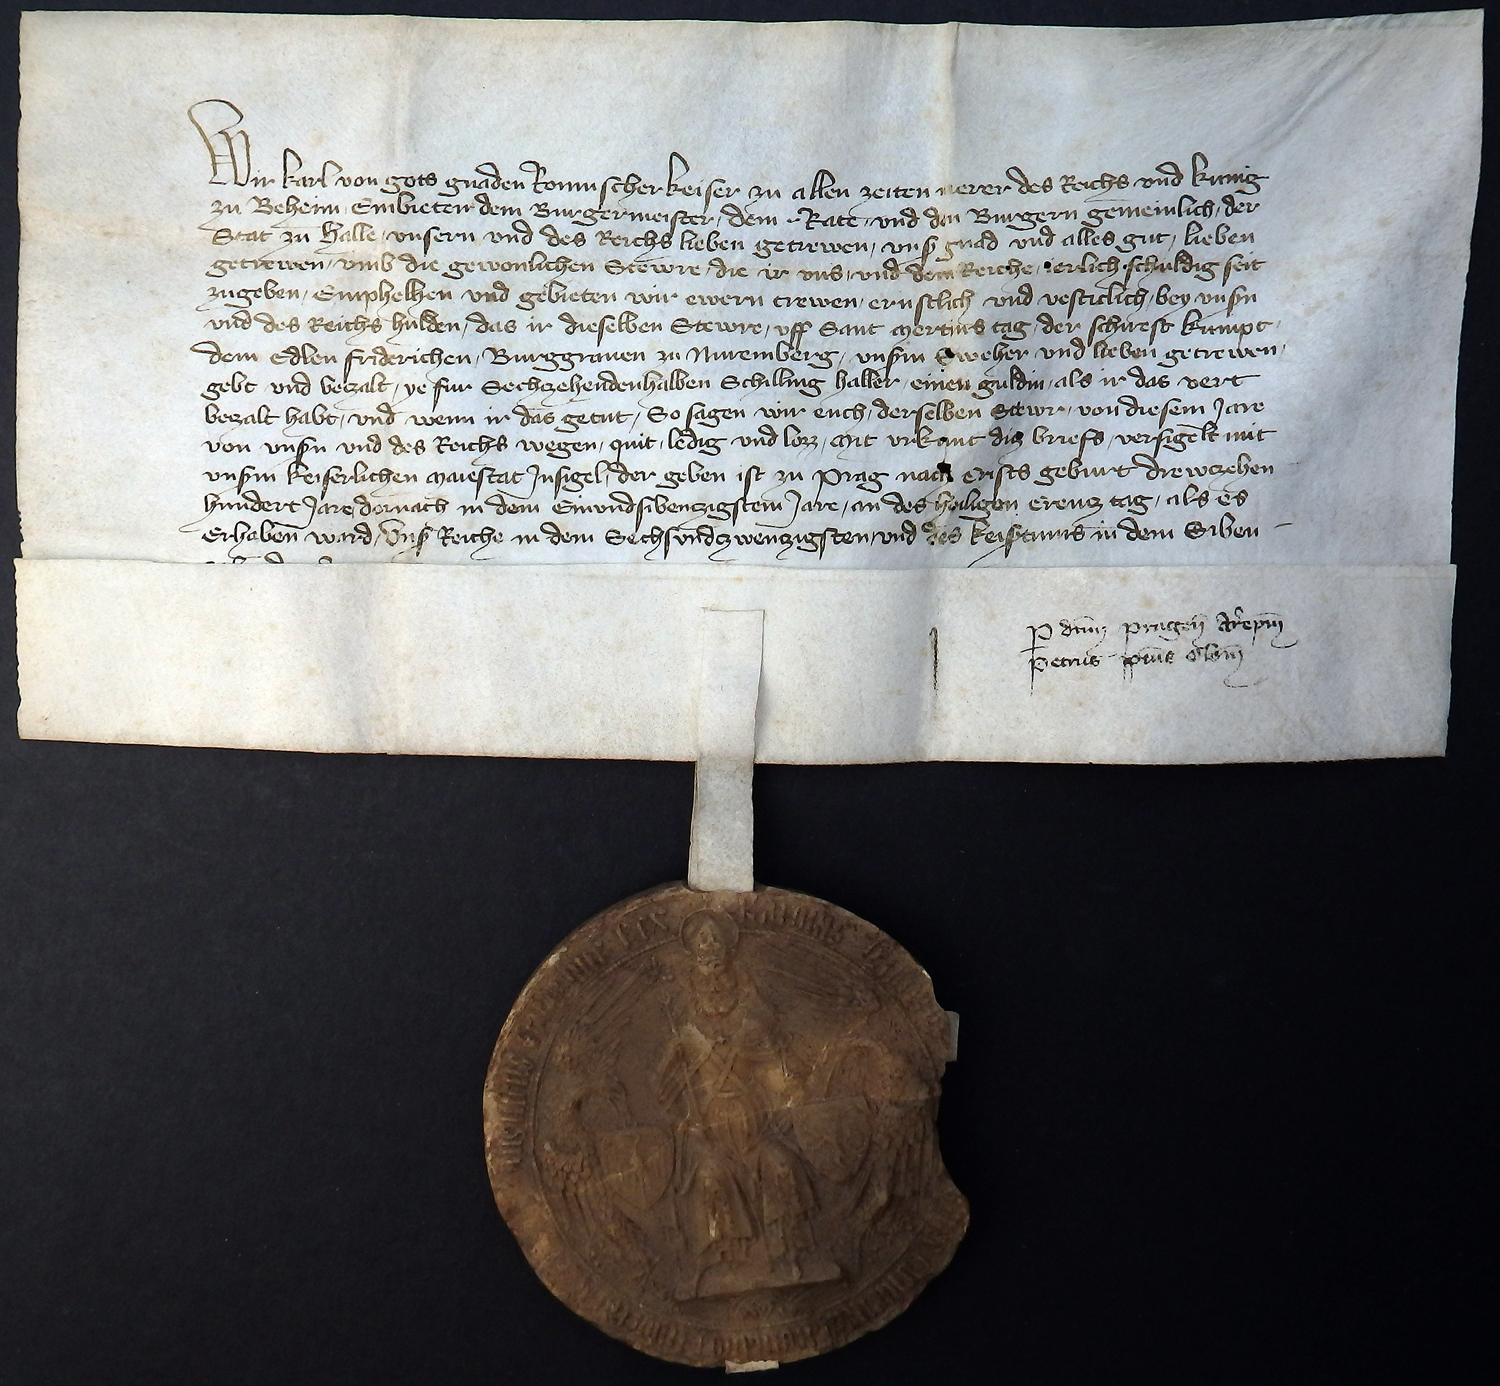 Wir karl von gots gnaden Romischer keiser zu allen zeiten merer des Reichs vnd kunig
zu Beheim, Embieten dem Burgermeister, dem Rate, vnd den Burgern gemeinlich, der
Stat zu Halle, vnsern vnd des Reichs lieben getrewen, vnsʼ gnad vnd alles gut, lieben
getrewen, vmb die gewonlichen Stewre, die ir vns, vnd dem Reiche, ierlich schuldig seit
zugeben, Emphelhen vnd gebieten wir ewern trewen, ernstlich vnd vesticlich, bey vnsʼn
vnd des Reichs hulden, das ir dieselben Stewre, vff Sant Mertins tag, der schirest kumpt,
dem Edlen friderichen, Burggrauen zu Nuremberg, vnsʼm Sweher vnd lieben getrewen,
gebt vnd bezalt, ye fur Sechzehendenhalben Schilling haller, einen guldin, als ir das vert
bezalt habt, vnd wenn ir das getut, So sagen wir euch, derselben Stewr, von diesem Jare
von vnsʼn vnd des Reichs wegen, quit, ledig vnd loz, Mit vrkunt diz briefs, versigelt mit
vnsʼm keiserlichen maiestat Jnsigel, der geben ist zu Prag nach crists geburt drewczehen
hundert Jare dornach in dem Einvndsibenzigstem Jare, an des heiligen Creuz tag, als es
Erhaben ward, Vnsʼ Reiche in dem Sechsvndzwenzigsten, vnd des keisʼtums in dem Siben
P dnm̄ pragen̄ Arēpm̄
Petrus ppūs Olom̄